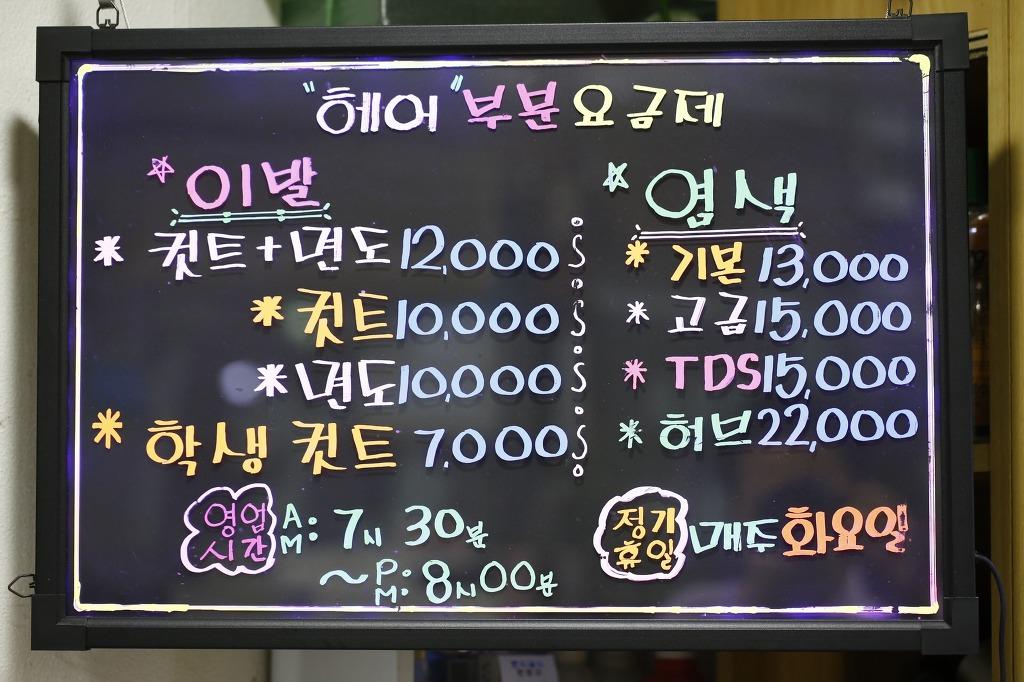 "헤어" 부분요금제
이발
컷트+면도 12,000
컷트 10,000
면도 10,000
학생 컷트 7,000
염색
기본 13,000
고급 15,000
TDS 15,000
허브 22,000
영업시간 AM: 7시 30분
~PM: 8시00분
정기휴일 매주 화요일!